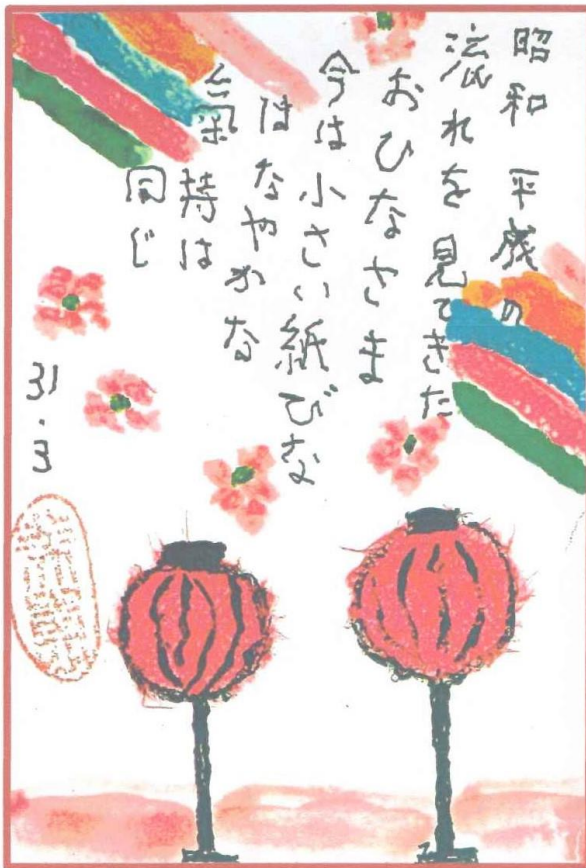 昭和 平成の
流れを見てきた
おひなさま
今は小さい紙びな
はなやかな
気持は
同じ
31.3